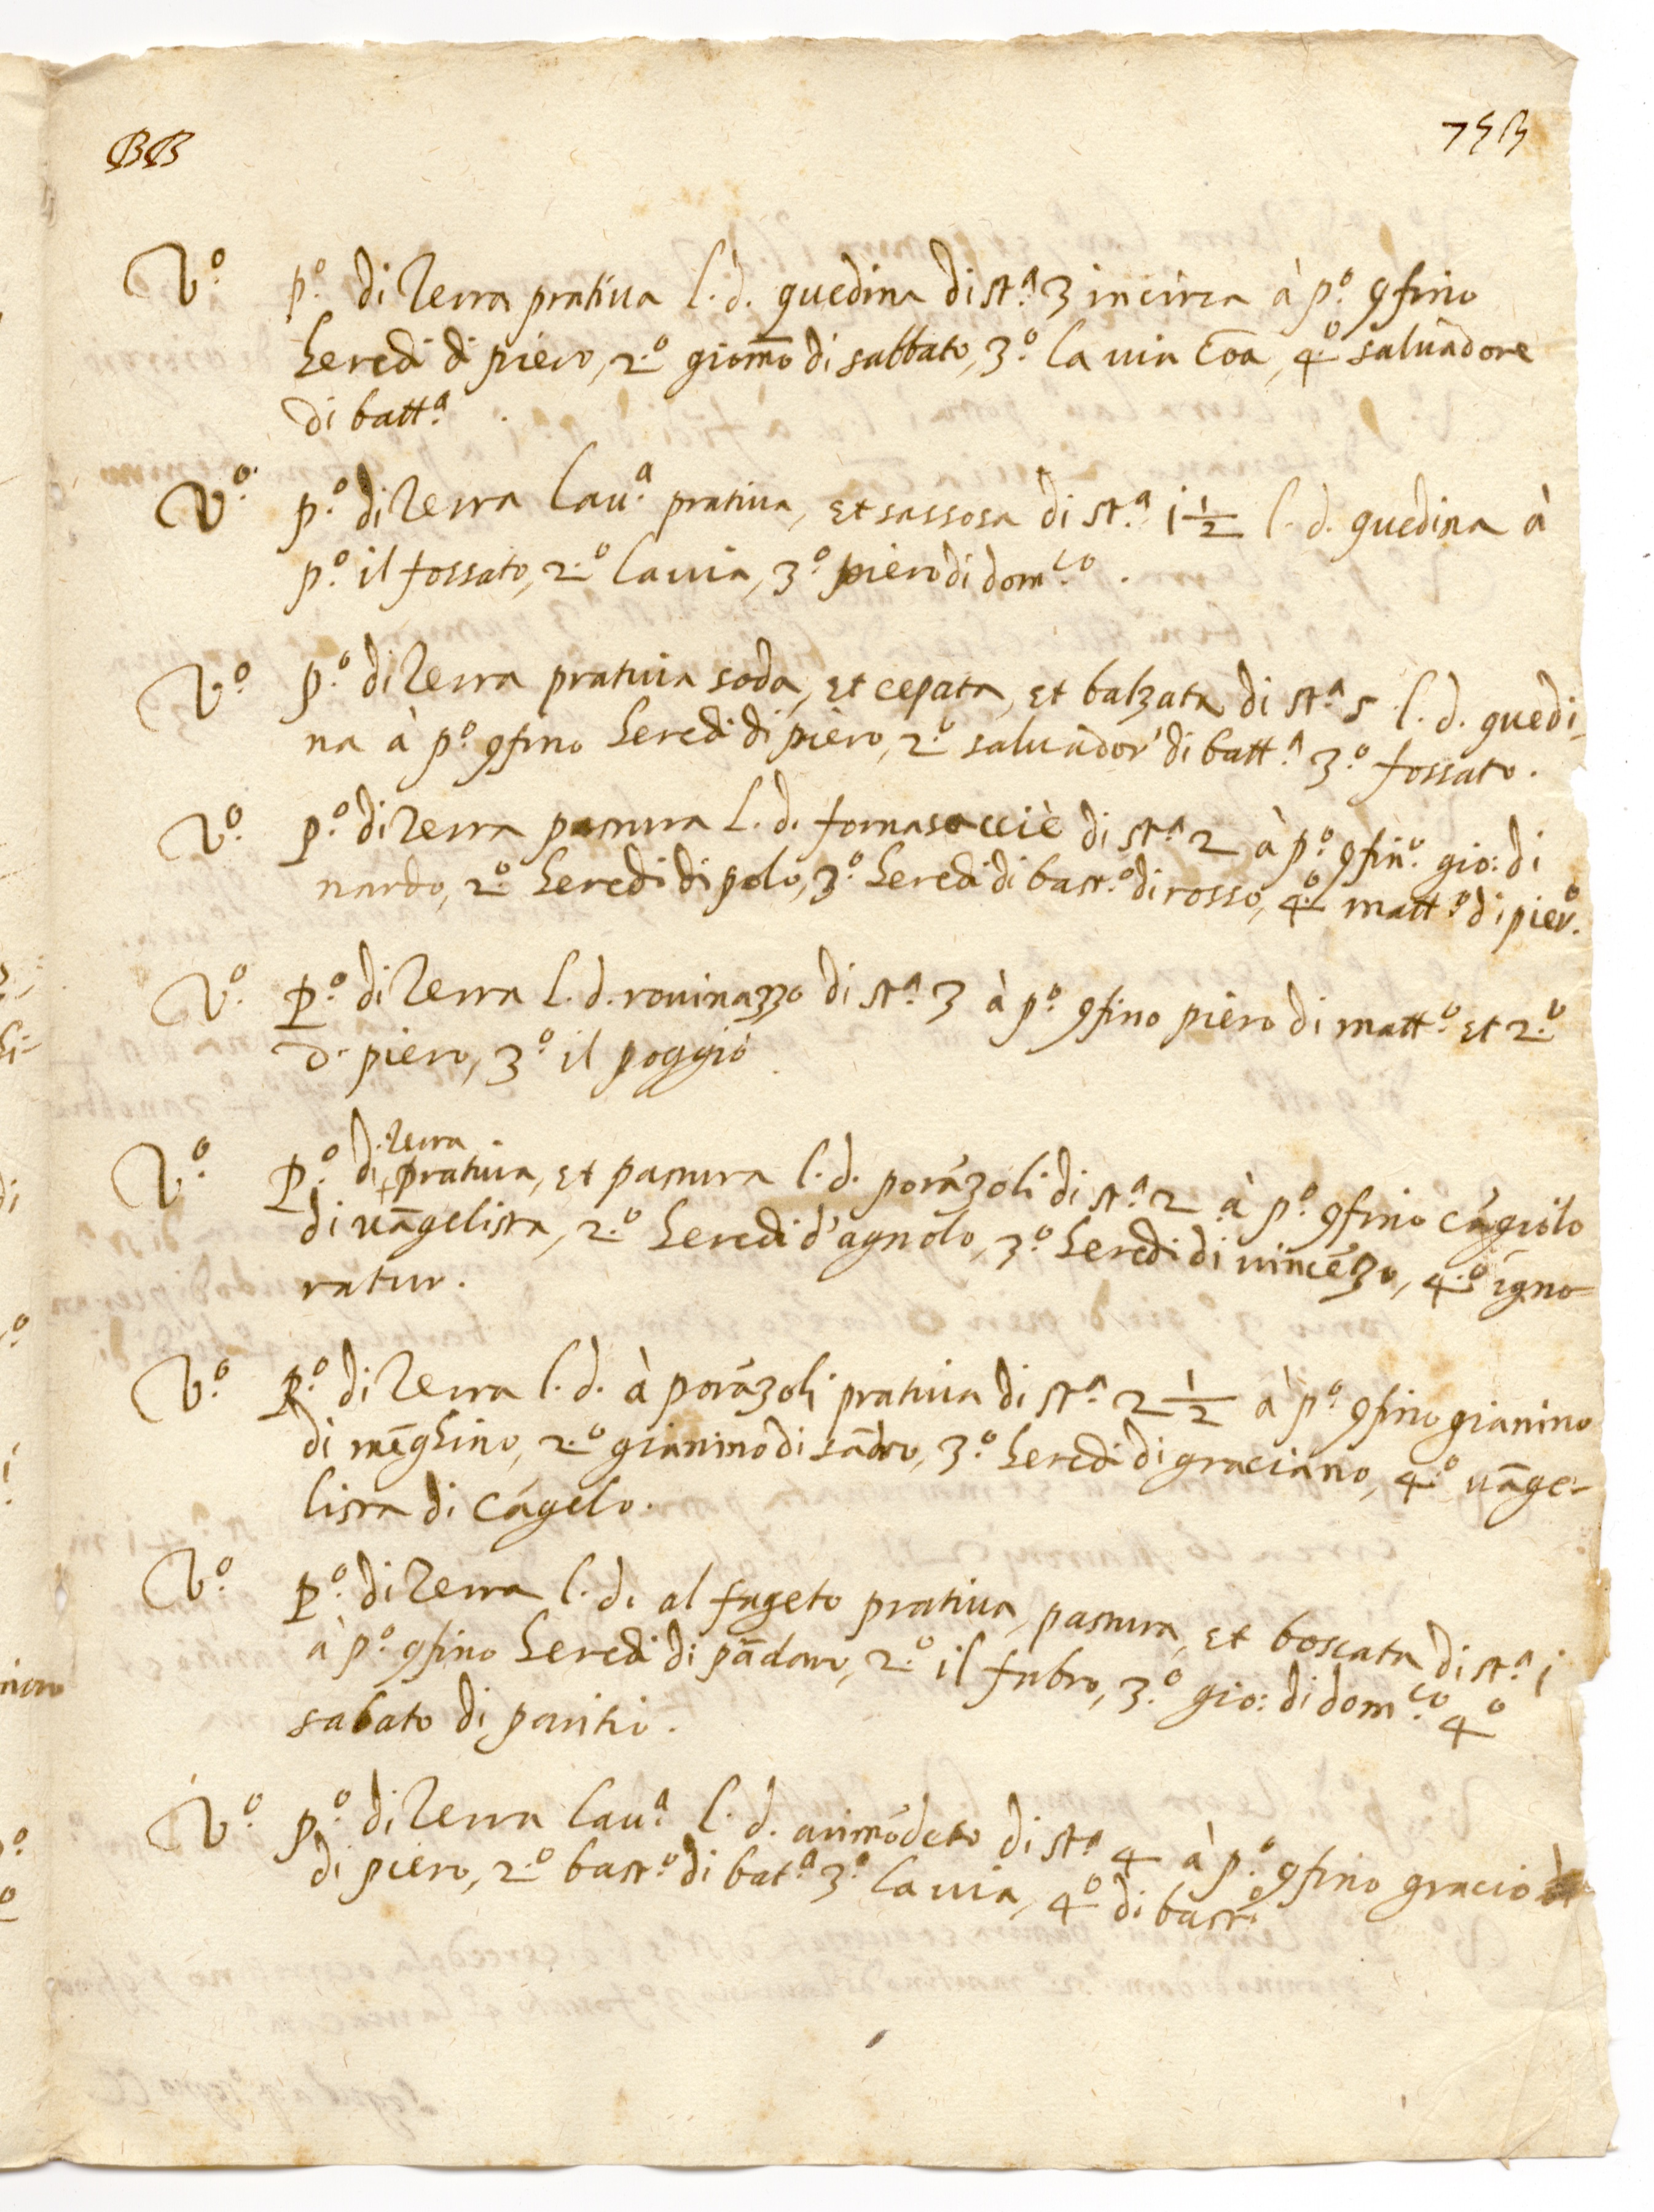 BB
V.º p.º di Terra pratiua l. d. guedina di st.ª 3 incirca à p.º 9fino
heredi di piero, 2.º giom̄o di sabbato, 3.º la uia Cōa, 4.º saluadore
di batt.ª
V.º p.º di Terra lau.ª pratiua, et sassosa di st.ª i ½ l. d. guedina à
p.º il fossato, 2.º la uia, 3.º piero di dom.co .
V.º p.º di Terra pratiua soda, et cepata, et balzata di st.ª 5 l. d. guedi-
na à p.º 9fino heredi di piero, 2.º saluador' di batt.ª 3.º fossato.
V.º p.º di Terra pastura l. d. fornasaccie di st.ª 2 à p.º 9fin.º gio: di
nardo, 2.º heredi di polo, 3.º heredi di bast.º di rosso, 4.º matt.º di pier.º
V.º P.º di Terra l. d. rouinazzo di st.ª 3 à p.º 9fino piero di matt.º et 2.º
d. piero, 3.º il poggio
V.º P.º di + di Terra pratiua, et pastura l. d. porāzoli di st.ª 2 à p.º 9fino cāgiolo
di uāgelista, 2.º heredi d'agnolo, 3.º heredi di uincēzo, 4.º igno-
ratur.
V.º P.º di Terra l. d. à porāzoli pratiua di st.ª 2 ½ à p.º 9fino gianino
di mēghino, 2.º gianino di sādro, 3.º heredi di graciano, 4.º uāge-
lista di cāgelo.
V.º P.º di Terra l. d. al fageto pratiua, pastura, et boscata di st.ª i
à p.º 9fino heredi di pādoro, 2.º il fabro, 3.º gio: di dom.co 4.º
sabato di pauitri.
V.º p.º di Terra lau.ª l. d. animōdeto di st.ª 4 à p.º 9fino gracio
di piero, 2.º bast.º di bat.ª 3.º la uia, 4.º di bast.º